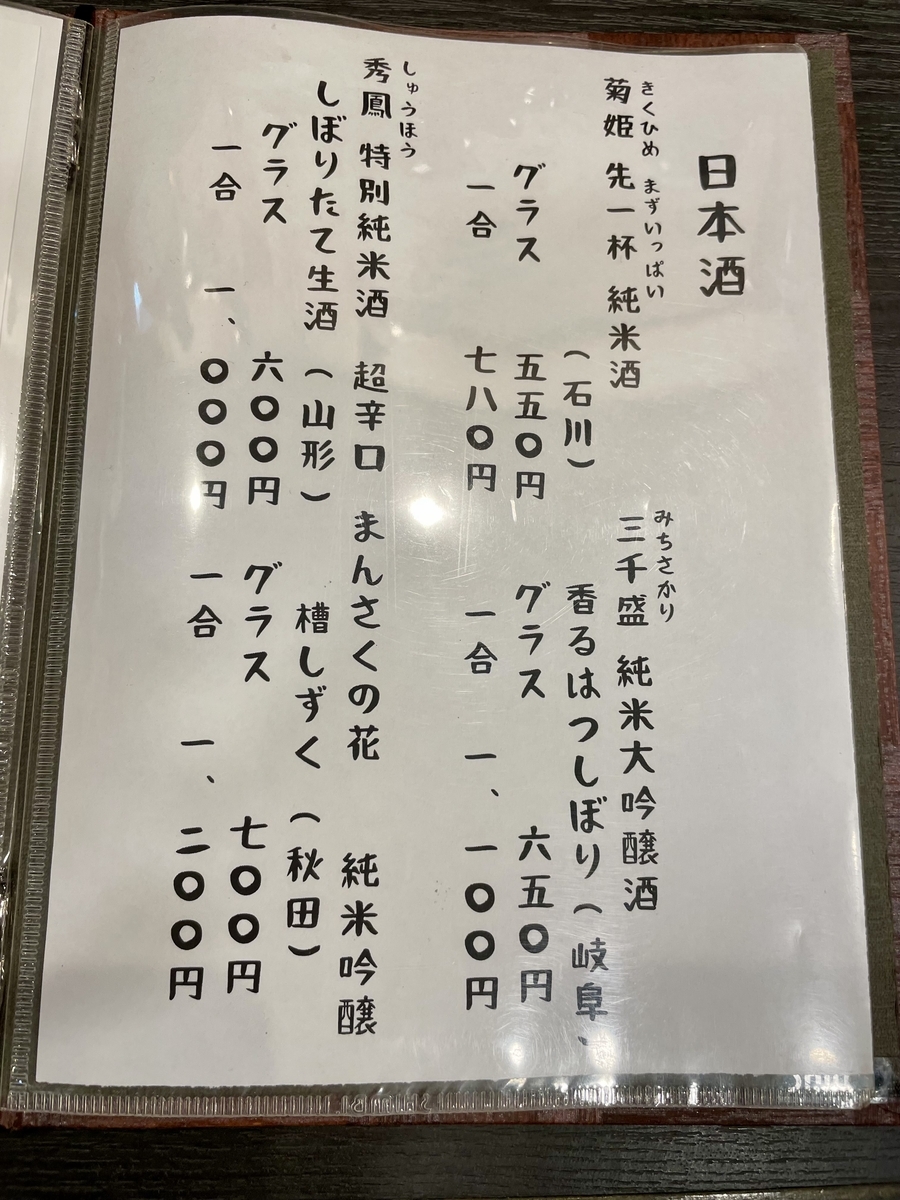 日本酒
きくひめ まずいっぱい
菊姫 先一杯 純米酒
(石川)
グラス 五五〇円
一合 七八〇円
みちさかり
三千盛 純米大吟醸酒
香るはつしぼり(岐阜)
グラス 六五〇円
一合 一、一〇〇円
しゅうほう
秀鳳 特別純米酒 超辛口
しぼりたて生酒 (山形)
グラス 六〇〇円
一合 一、〇〇〇円
まんさくの花 純米吟醸
槽しずく (秋田)
グラス 七〇〇円
一合 一、二〇〇円